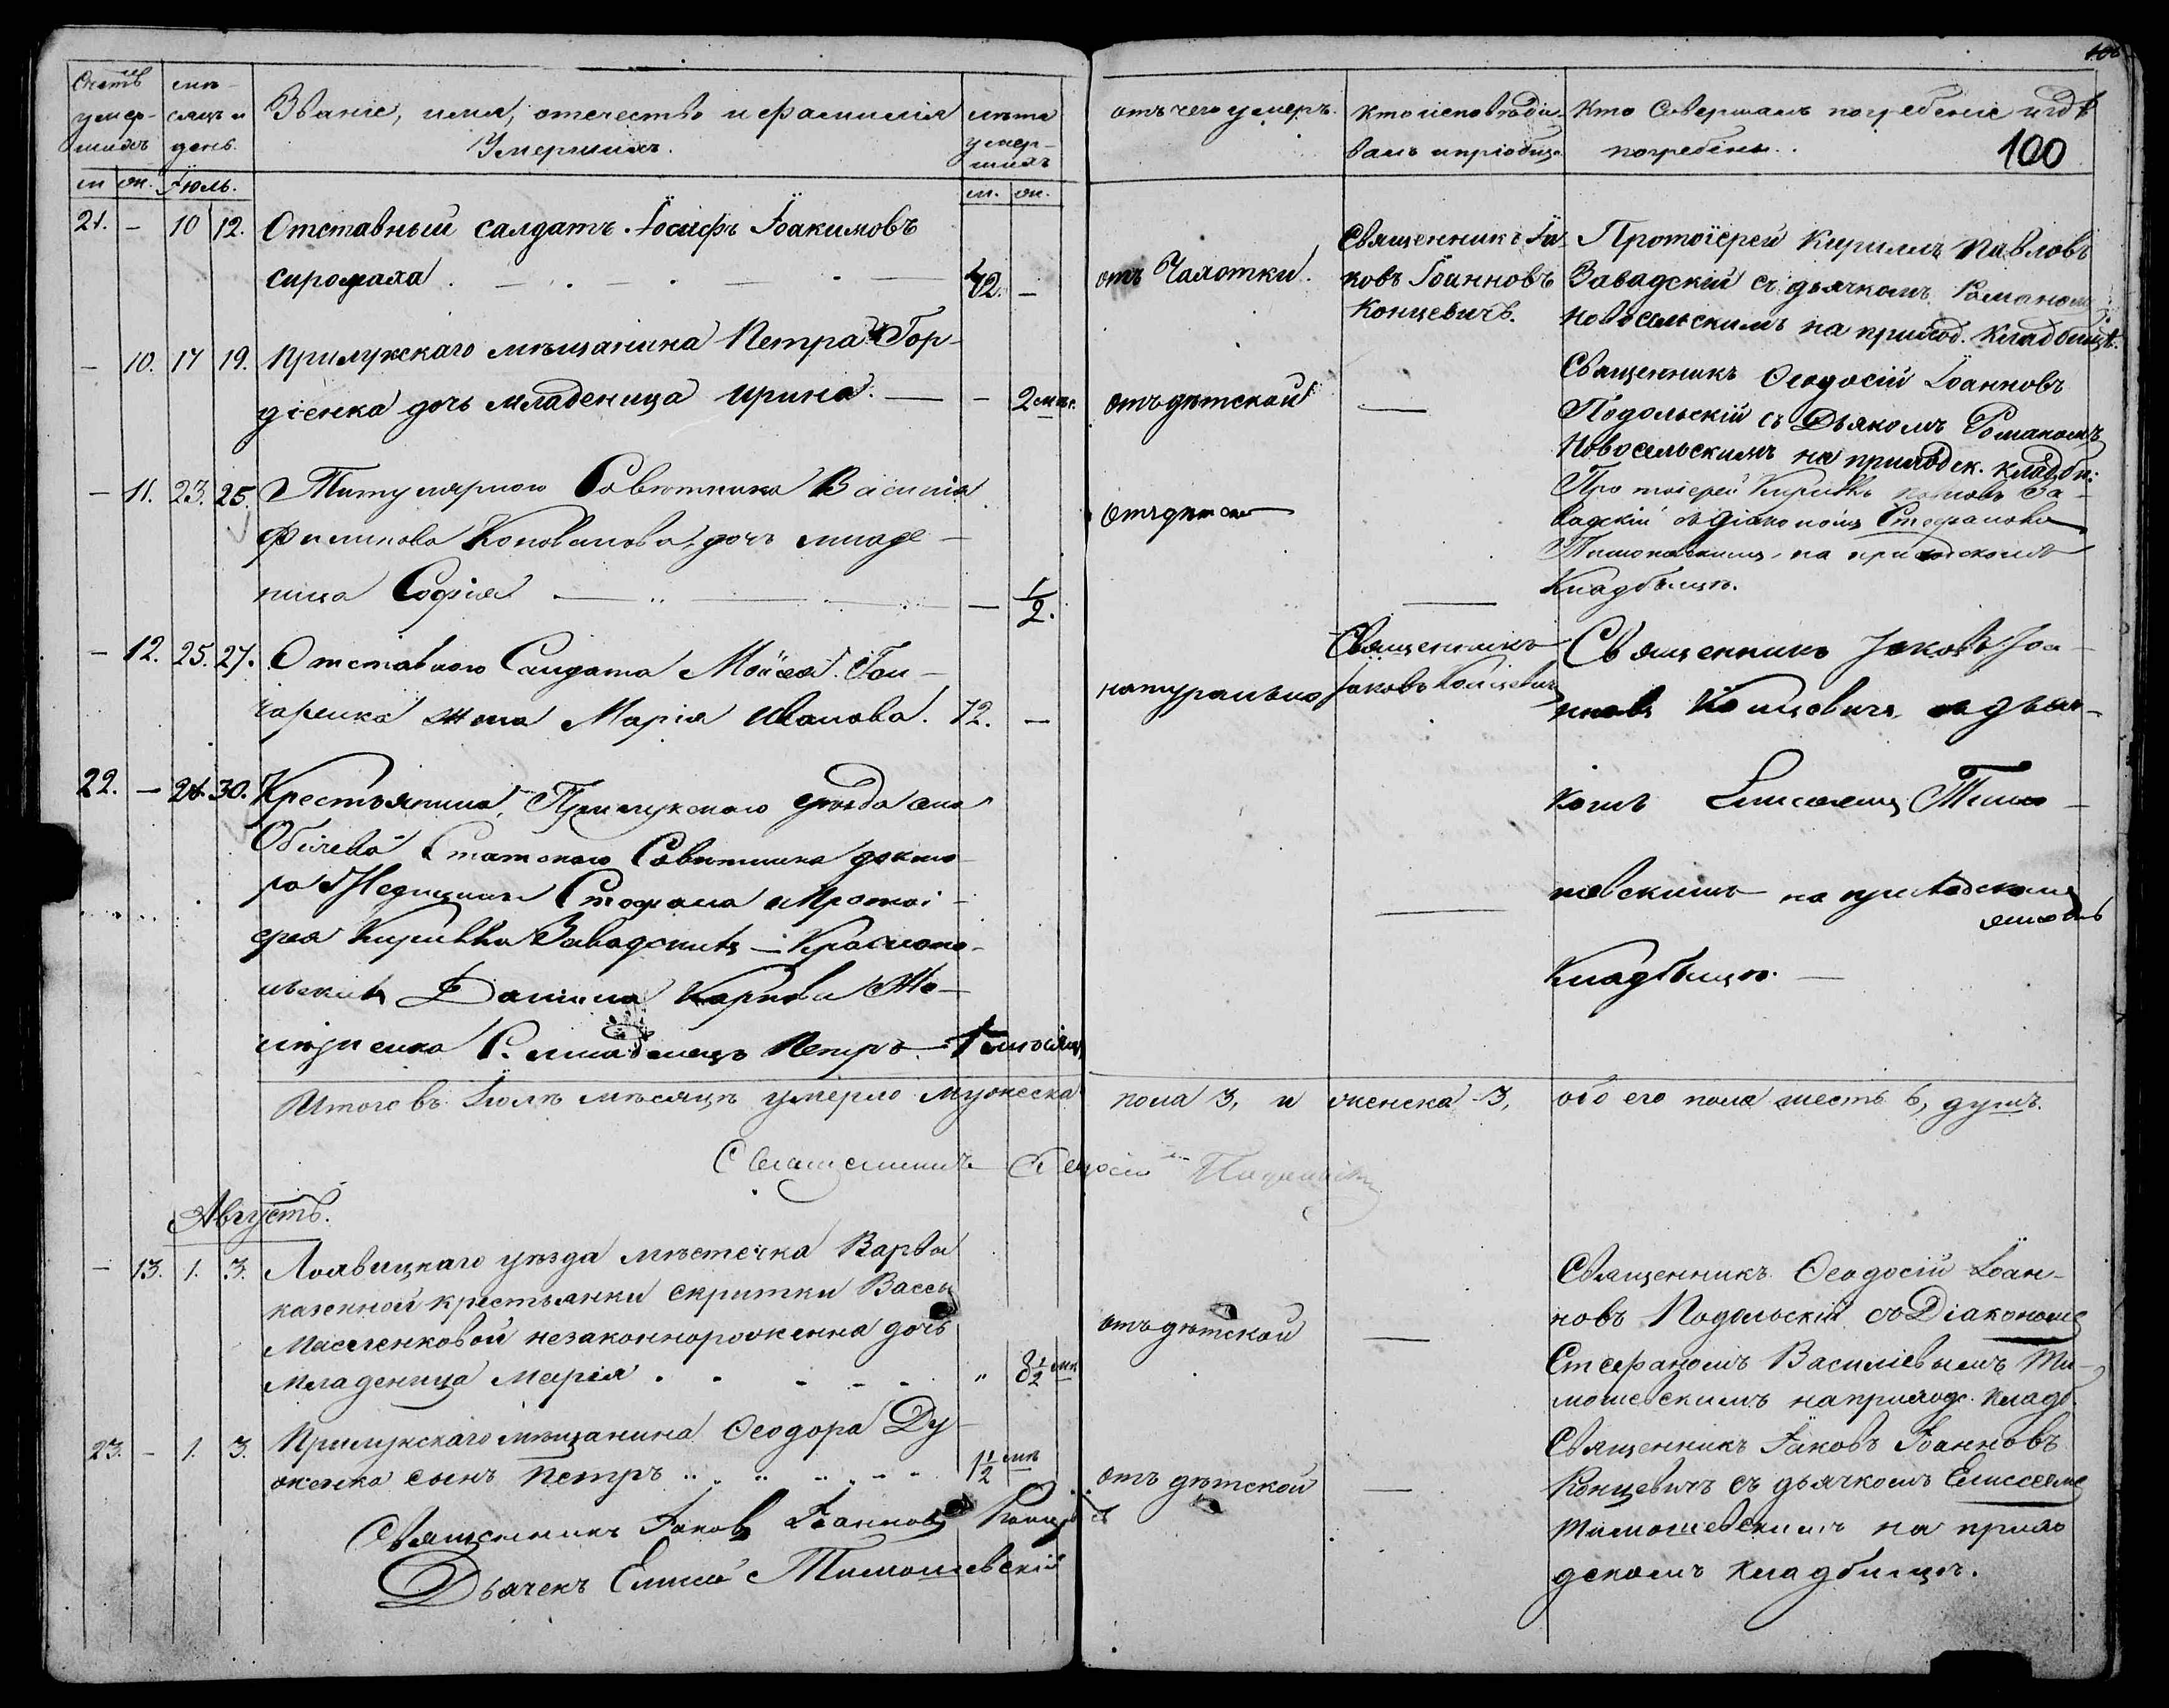 Счетъ умер-
шихъ
мѣ-
сяцъ и
день.
Званіе, имя, отечество и фамилія
Умершихъ.
лѣта
умер-
шихъ
отъ чего умеръ.
Кто исповѣды-
валъ и пріобщ.
Кто совершалъ погребеніе и гдѣ
погребены.
100
м. ж. Іюль.
м. ж.
21. — 10 12. Отставный салдатъ Іосифъ Іоакимовъ
сиромаха. 72. —
отъ Чахотки.
Священникъ Іа-
ковъ Іоанновъ
Концевичъ.
Протоіерей Кириллъ Павловъ
Завадскій съ дьячкомъ Романомъ
Новосельскимъ на приход. кладбищѣ.
— 10. 17 19. Прилукскаго мѣщанина Петра Гор-
діенка дочь младеница Ирина. — — 2 мѣс.
отъ дѣтской
—
Священникъ Ѳеодосій Іоанновъ
Подольскій съ Дьякомъ Романомъ
Новосельскимъ на приходск. кладби:
— 11. 23. 25. Титулярного Совѣтника Василія
Филипова Коновалова дочь младе-
ница Софія — — 1/2.
отъ дѣтской
—
Протоіерей Кириллъ Павловъ За-
вадскій съ Діакономъ Стефановъ
Тимошевскимъ на приходскомъ
Кладбищѣ.
— 12. 25. 27. Отставного Салдата Моѵсея Гон-
чаренка жена Марія Иванова. 72. —
натурально
Священникъ
Іаковъ Концевичъ
Священникъ Іаковъ Іоа-
нновъ Концевичъ съ дьяч-
комъ Елисеемъ Тимо-
шевскимъ на приходскомъ
Кладбищѣ. —
22. — 28. 30. Крестьянина Прилукского уѣзда села
Обичева Статского Совѣтника докто-
ра Медицины Стефана и Протоі-
ерея Кирилла Завадскихъ — Красноко-
льскихъ Даніила Карпова Мо-
сіенка С. младенецъ Петръ — 1 мѣсяцъ
—
Итого въ Іюлѣ мѣсяцѣ умерло мужеска пола 3, и женска 3, обоего пола шесть 6, душъ.
Священникъ Ѳеодосій Подольскій
Августъ.
— 13. 1. 3. Лохвицкаго уѣзда мѣстечка Варвы
казенной крестьянки скритки Вассы
Масленковой незаконнорожденна дочь
младеница Марія. „ 8 1/2 мѣ
отъ дѣтской
—
Священникъ Ѳеодосій Іоан-
новъ Подольскій съ Діакономъ
Стефаномъ Василіевымъ Ти-
мошевскимъ на приход. кладб.
23. — 1. 3. Прилукскаго мѣщанина Ѳеодора Ду-
женка сынъ Петръ 1 1/2 мѣ
отъ дѣтской
—
Священникъ Іаковъ Іоанновъ
Концевичъ съ дьячкомъ Елисеемъ
Тимошевскимъ на прихо
дскомъ кладбищѣ.
Священникъ Іаковъ Іоанновъ Концевичъ
Дьячекъ Елисей Тимошевскій